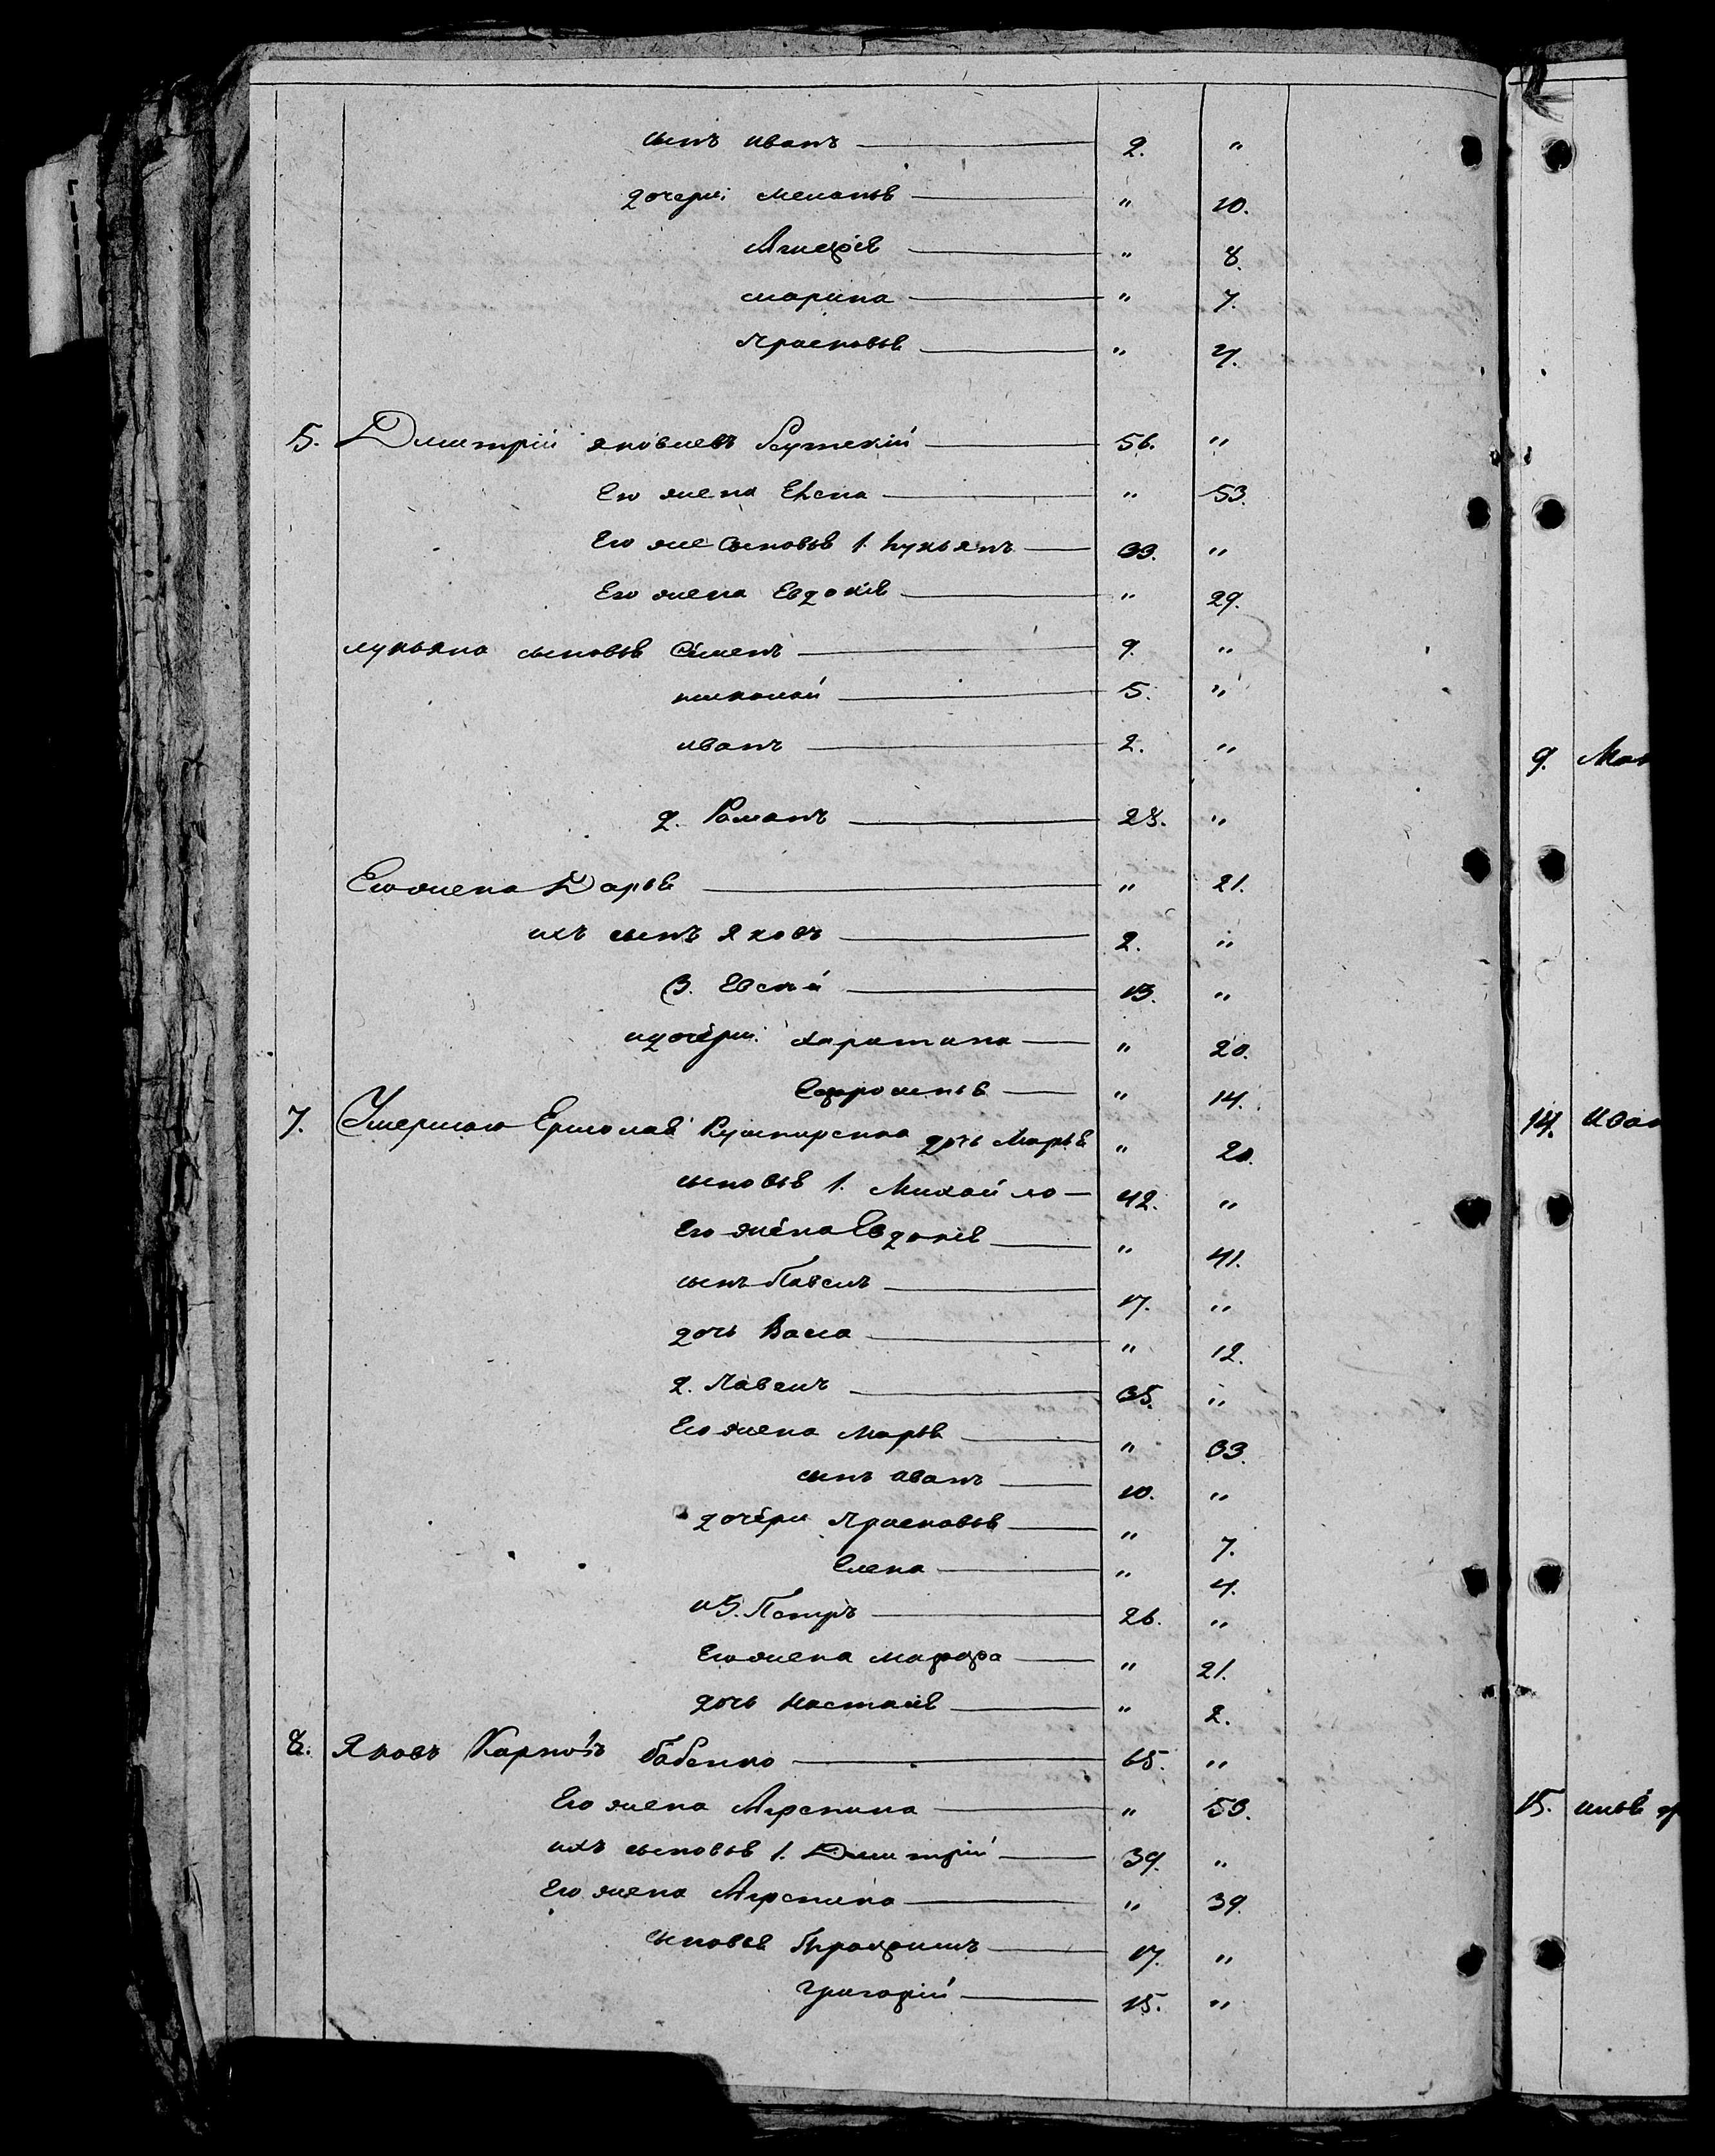 сынъ иванъ — 2. "
дочери: меланья — " 10.
Агафія — " 8.
марина — " 7.
Прасковья — " 4.
5. Дмитрій яковлевъ — 56. "
Его жена Елена — " 53.
Его же Сыновья 1. Лукьянъ — 33. "
Его жена Евдокія — " 29.
лукьяна сыновья Семенъ — 9. "
николай — 5. "
иванъ — 2. "
2. Романъ — 28. "
Его жена Дарья — " 21.
ихъ сынъ Яковъ — 2. "
3. Евсѣй — 13. "
и дочери: харитина — " 20.
Ефросинья — " 14.
7. Умершаго Ермолая дочь Марья " 20.
сыновья 1. Михайло — 42. "
Его жена Евдокія — " 41.
сынъ Павелъ — 17. "
дочь Васса — " 12.
2. Павелъ — 35. "
Его жена Марья — " 33.
сынъ иванъ — 10. "
дочери Прасковья — " 7.
Елена — " 4.
и 3. Петръ — 26. "
Его жена марфа — " 21.
дочь Настасія — " 2.
8. Яковъ Карповъ Бабенко — 65. "
Его жена Агрепина — " 53.
ихъ сыновья 1. Дмитрій — 39. "
Его жена Агрепина — " 39.
сыновья Трофимъ — 17. "
Григорій — 15. "
9. Мат
14. иван
15. илья